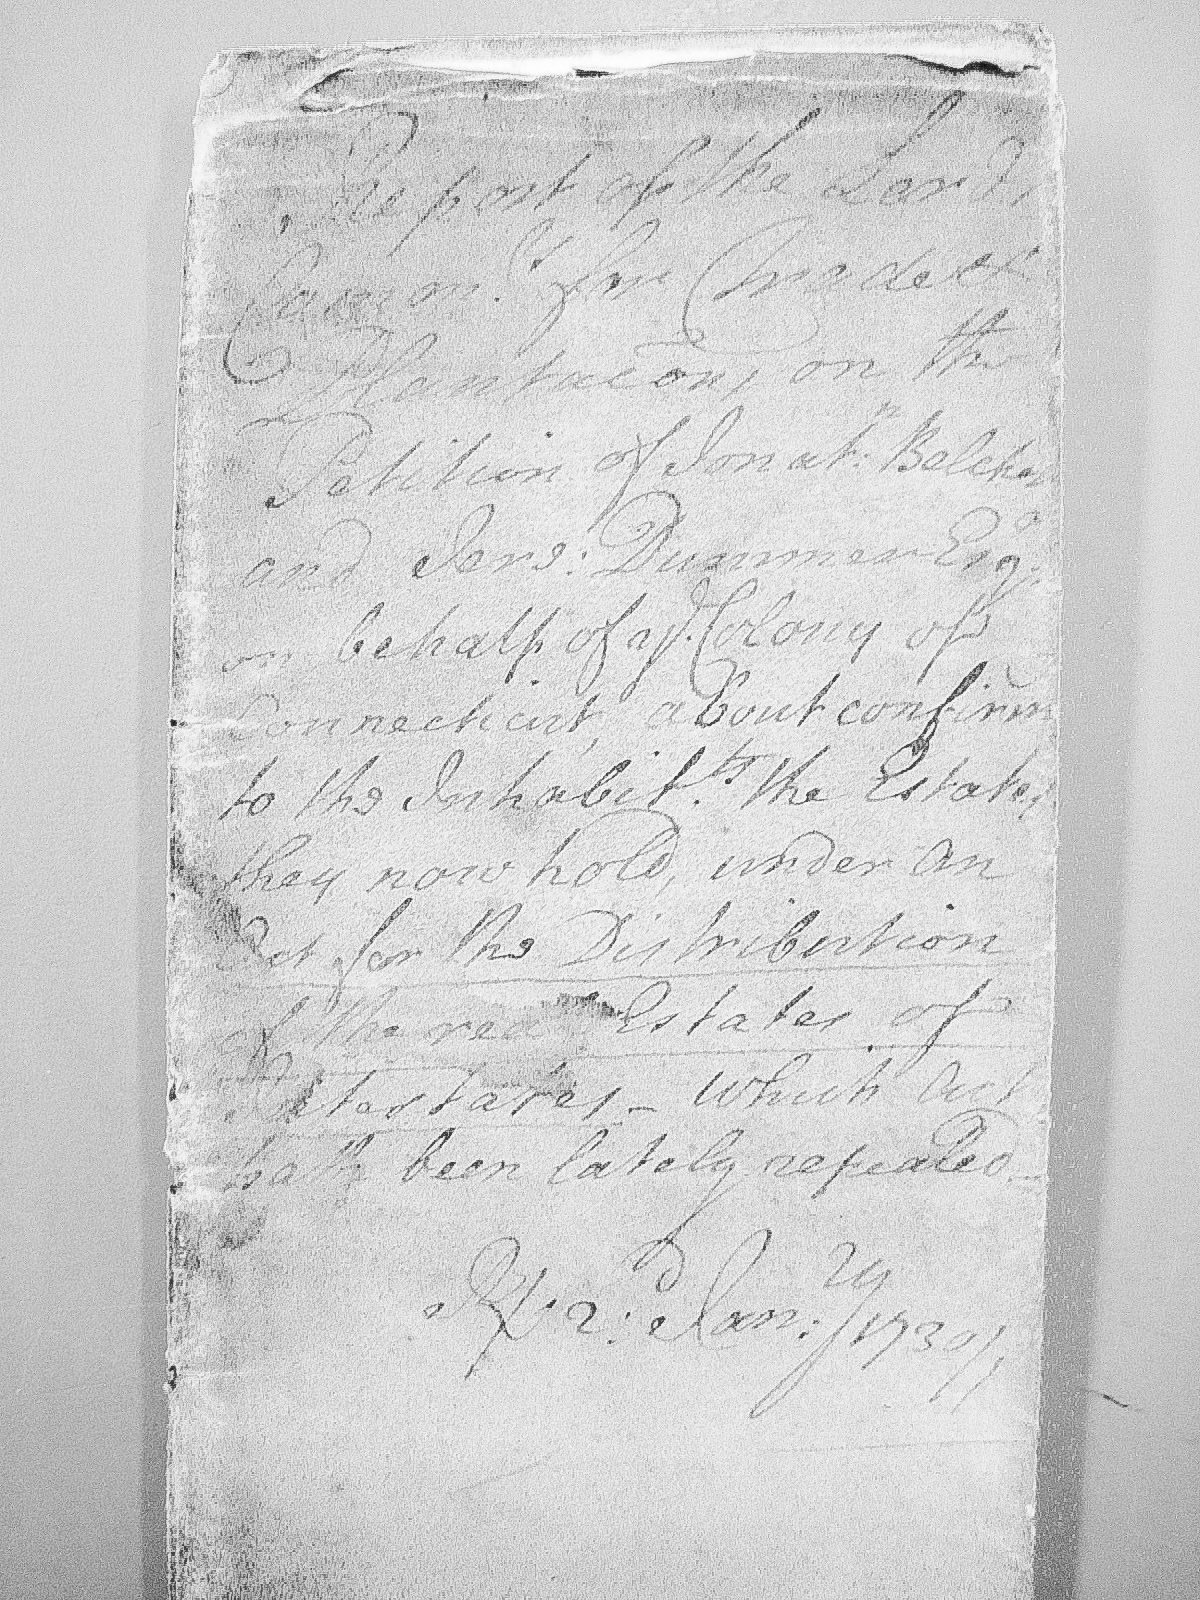 Report of the Lords
Com̄on.rs for Trade &
Plantac̄ons on the
Petition of Jonat.n Belcher
and Jere: Dummer Esq.rs
on behalf of ye. Colony of
Connecticut, about confirm
to the Inhabit.ts the Estates
they now hold, under an
Act for the Distribution
of the real Estates of
Intestates_ which Act
hath been lately repealed_
2.d Jan:ry 1730//